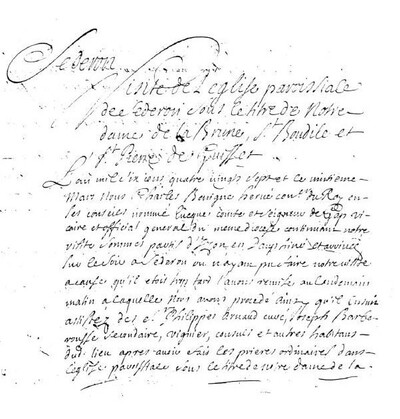 Sederon
Visite de l'eglise parroissiale
de Sederon sous le titre de Notre
dame de la Brune, St Boudile et
St Pierre de
L'an mil six cens quatre vingts sept et le vintieme
Mars Nous Charles herué coner du Roy en
ses conseils nommé Eueque comte et seigneur de Gap vi
caire et official general du meme diocese continuant notre
visite sommes partis d'Izon en Dauphiné et arrivés
sur le soir a Sederon ou n'ayant pu faire notre visite
a cause qu'il etoit trop tard l'auons remise au lendemain
matin a laquelle nous auons procedé ainsy qu'il ensuit
assistez des Srs Philippes Arnaud curé, Joseph Barba
rousse secondaire, consuls et autres habitans
dud. lieu apres auoir fait les prieres ordinaires dans
l'eglise parroissiale sous le titre de notre dame de la